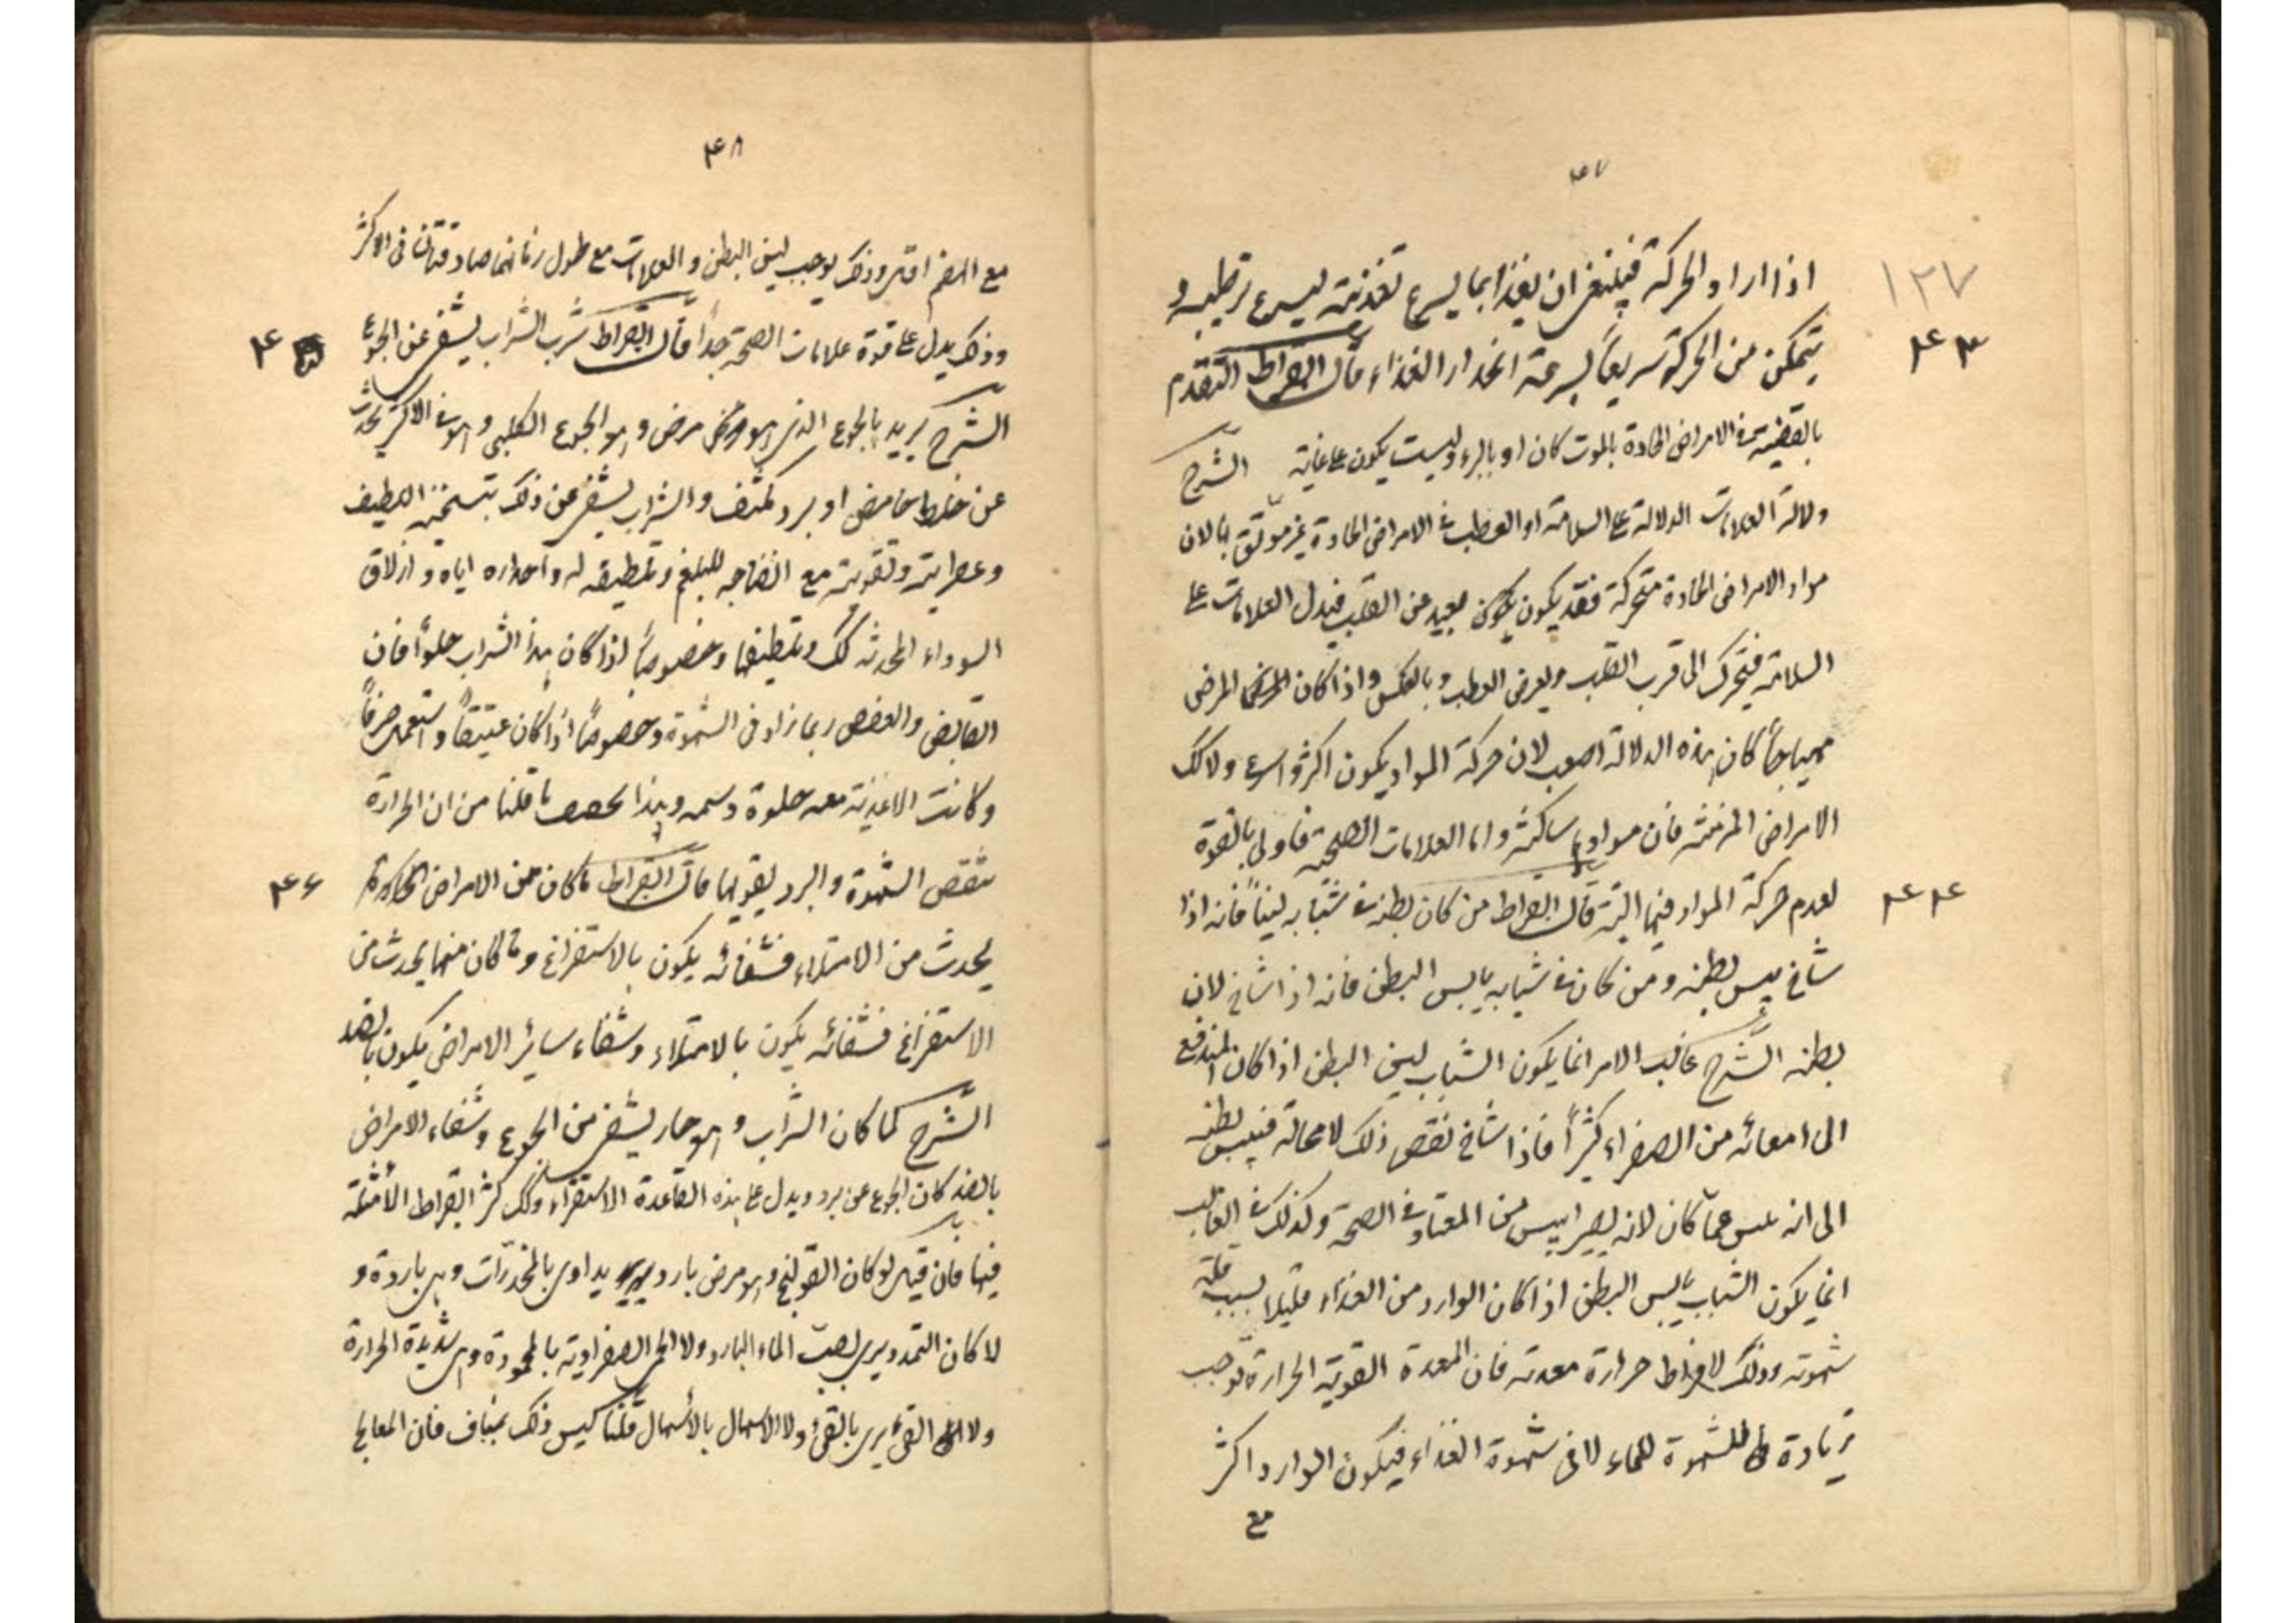 ۴۷
۱۲۷
اذا اراد الحركة فينبغى ان يغذا بما يسرع تغذيته ليسرع ترطيبه و
۴۳
يتمكن من الحركة سريعاً لسرعة انحدار الغذاء قال ابقراط التقدم
بالقضية فى الامراض الحادة بالموت كان او بالبرء وليست يكون على غاية الشرح
دلالة العلامات الدلالة على السلامة او العطب فى الامراض الحادة غير موثق بها لان
مواد الامراض الحادة متحركة فقد يكون بعيد عن القلب فيدل العلامات على
السلامة فيتحرك الى قرب القلب ويعرض العطب وبالعكس واذا كان المرض
مهياجاً كان هذه الدلالة اصعب لان حركة المواد يكون اكثر واسرع ولا كك
الامراض المزمنة فان موادها ساكنة واما العلامات الصحية فاولى بالقوة
۴۴
لعدم حركة المواد فيها البتة قال ابقراط من كان بطنه فى شبابه ليناً فانه اذا
شاخ يبس بطنه ومن كان فى شبابه يابس البطن فانه اذا شاخ لان
بطنه الشرح غالب الامر انما يكون الشباب لين البطن اذا كان المندفع
الى امعائه من الصفراء كثيراً فاذا شاخ نقص ذلك لا محالة فيبس بطنه
الى انه يبس عما كان لانه يصير ايبس من المعتاد فى الصحة وكذلك فى الغالب
انما يكون الشباب يابس البطن اذا كان الوارد من الغذاء قليلا بسبب قلة
شهوته وذلك لافراط حرارة معدته فان المعدة القوية الحرارة توجب
زيادة للشهوة للماء لا فى شهوة الغذاء فيكون الوارد اكثر
مع
۴۸
مع الهضم اقل وذلك يوجب لين البطن و العلامات مع طول زمانهما صادقتان فى الاكثر
۴
وذلك يدل على قوة علامات الصحة جداً قال ابقراط شرب الشراب يشفى عن الجوع
الشرح يريد بالجوع الذى هو مرض و هو الجوع الكلبى و هو فى الاكثر يحدث
عن خلط حامض او برد مكثف والشراب يشفى عن ذلك بتسخينه اللطيف
وعطريته وتقويته مع انضاجه للبلغم وتلطيفه له واحداره اياه و ازلاق
السوداء المحدثه كك وتلطيفها وخصوصاً اذا كان هذا الشراب حلواً فان
القابض والعفص ربما زاد فى الشهوة وخصوصاً اذا كان عتيقاً واستعمل صرفاً
وكانت الاغذية معه حلوة دسمه وهذا ما قلنا من ان الحرارة
۴۶
تنقص الشهوة والبرد يقويها قال ابقراط ما كان من الامراض
يحدث من الامتلاء فشفائه يكون بالاستفراغ وما كان منها يحدث من
الاستفراغ فشفائه يكون بالامتلاء وشفاء سائر الامراض يكون بالضد
الشرح كما كان الشراب و هو حار يشفى من الجوع وشفاء الامراض
بالضد كان الجوع عن برد ويدل على هذه القاعدة الاستقراء ولكك كثر ابقراط الأمثلة
فيها فان قيل لو كان القولنج وهو مرض بارد يداوى بالمخدرات وهى باردة و
لا كان التمدد يبرى بصب الماء البارد ولا الحمى الصفراوية بالمحمودة وهى شديدة الحرارة
ولا القئ يبرى بالقئ ولا الاسهال بالأسهال قلنا ليس ذلك بمناف فان المعالج